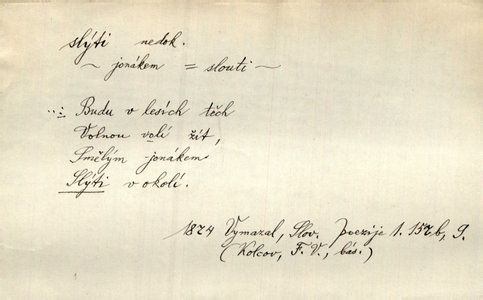 slýti nedok.
~ jonákem = slouti ~
..: Budu v lesích těch
Volnou volí žít,
Smělým jonákem
Slýti v okolí.
1874 Vymazal, Slov. poezije 1. 157b, 9.
(Kolcov, F. V., bás.)